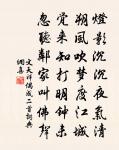 燈影沉沉夜氣清
朔風吹夢度江城
覺來知打明鐘未
忽聽鄰家叫佛聲
文天祥偶成二首詞典
網喜